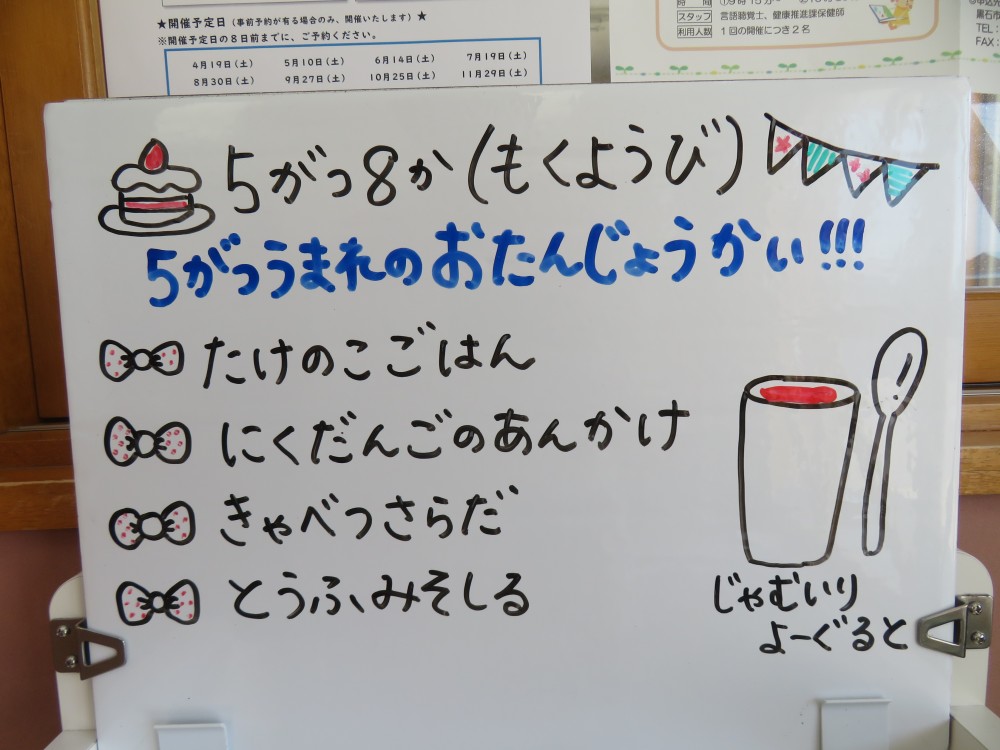 ★開催予定日（事前予約が有る場合のみ、開催いたします）★
※開催予定日の８日前までに、ご予約ください。
4月19日(土) 5月10日(土) 6月14日(土) 7月19日(土)
8月30日(土) 9月27日(土) 10月25日(土) 11月29日(土)
スタッフ 言語聴覚士、健康推進課保健師
利用人数 1回の開催につき２名
黒石市
FAX
5がつ8か(もくようび)
5がつうまれのおたんじょうかい!!!
たけのこごはん
にくだんごのあんかけ
きゃべつさらだ
とうふみそしる
じゃむいり
よーぐると